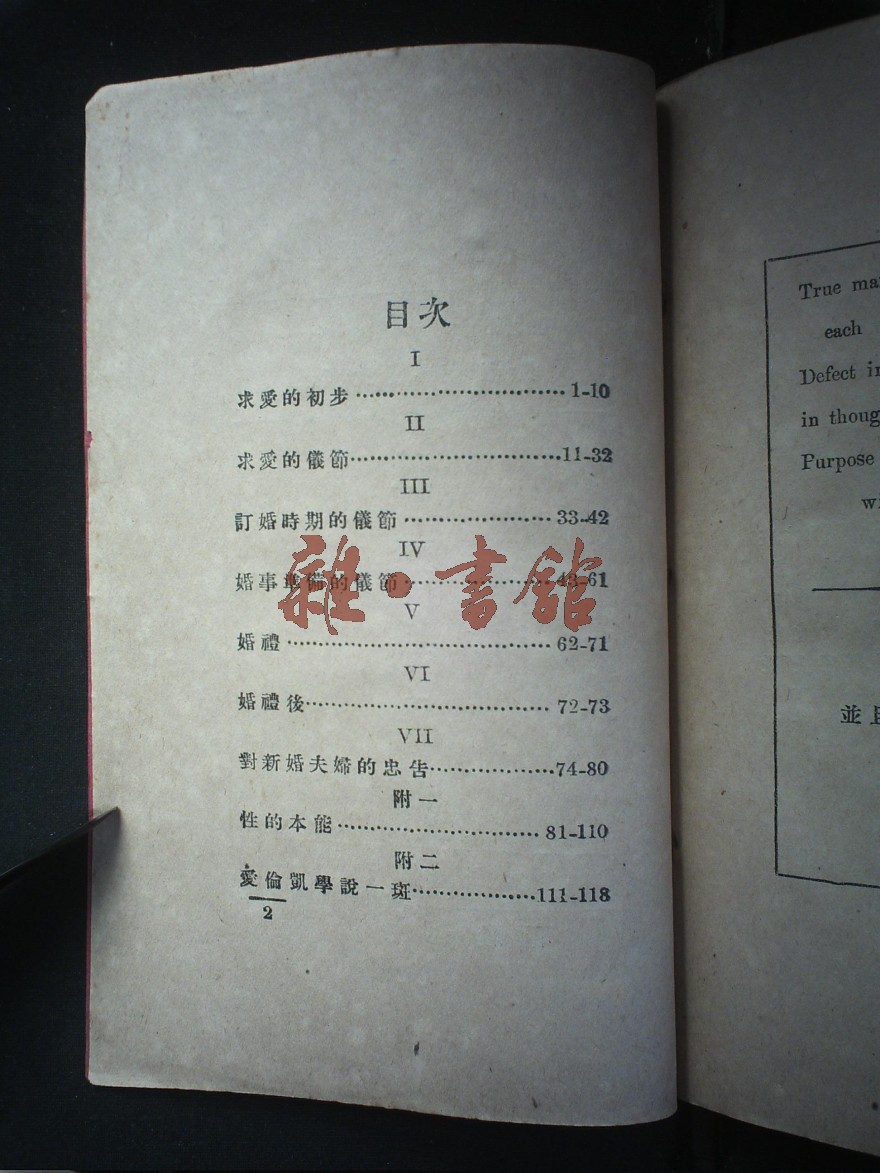 目次
I
求愛的初步 1-10
II
求愛的儀節 11-32
III
訂婚時期的儀節 33-42
IV
婚事準備的儀節 43-61
V
婚禮 62-71
VI
婚禮後 72-73
VII
對新婚夫婦的忠告 74-80
附一
性的本能 81-110
附二
愛倫凱學說一斑 111-118
2
雜·書館
True
each
Defect
in
Purpose
並